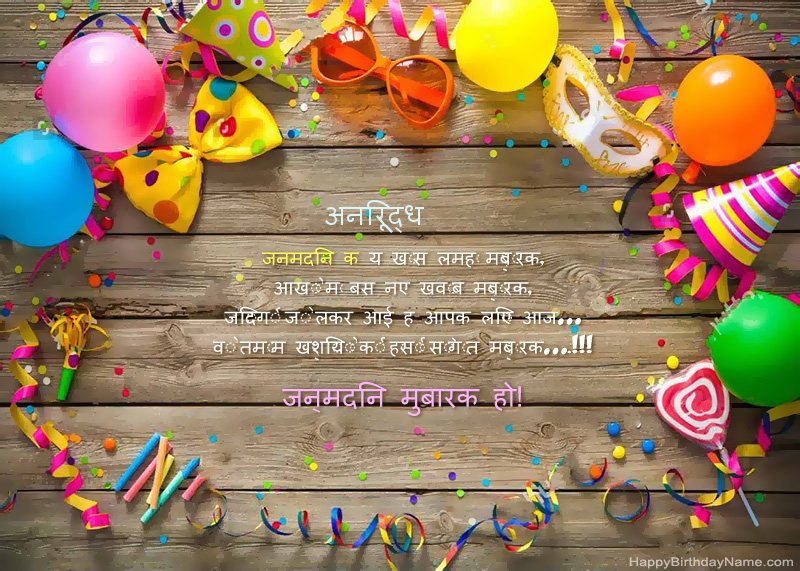 अनिरूद्ध
जनमदनि क य खास लमहा मबारक,
आखों में बस नए खवाब मबारक,
जदिगी जो लेकर आई ह आपक लएि आज...
वो तमाम खुशयिों की हसीं सौगात मबारक...!!!
जन्मदनि मुबारक हो!
HappyBirthdayName.com